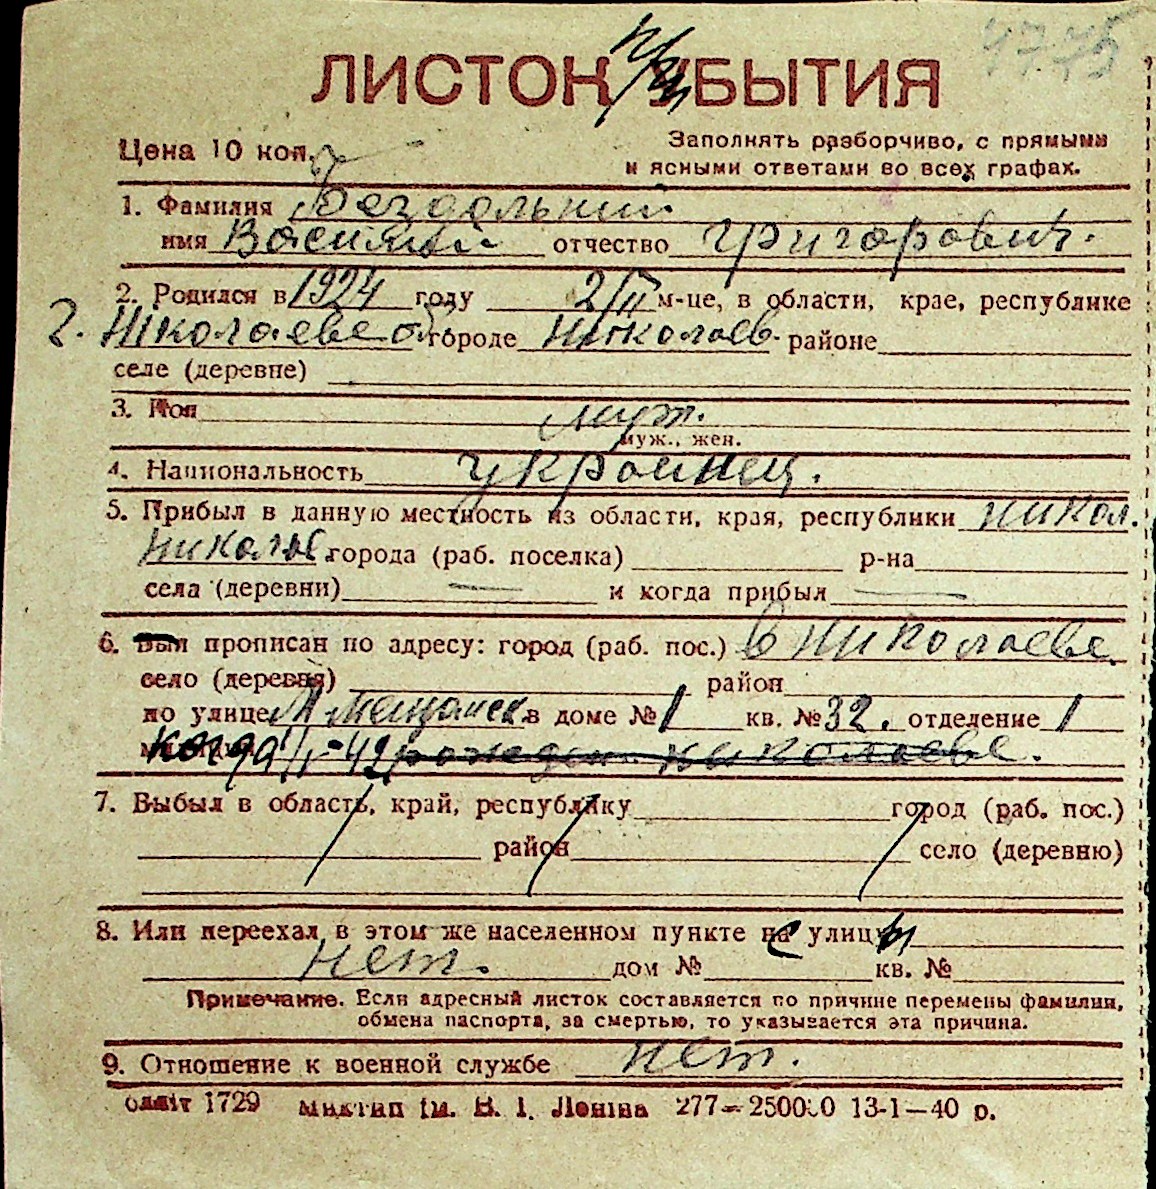 4775
ЛИСТОК УБЫТИЯ
Цена 10 коп.
Заполнять разборчиво, с прямыми
и ясными ответами во всех графах.
1. Фамилия Бездольний
имя Василий отчество Григорович.
2. Родился в 1924 году 2/II м-це, в области, крае, республике
г. Николаеве обл. городе Николаев. районе
селе (деревне)
3. Пол муж.
муж., жен.
4. Национальность украинец.
5. Прибыл в данную местность из области, края, республики Никол.
Николаев. города (раб. поселка) р-на
села (деревни) — и когда прибыл —
6. Был прописан по адресу: город (раб. пос.) в Николаеве.
село (деревня) район
по улице Мещанск. в доме № 1 кв. № 32. отделение 1
когда рожден Николаеве.
7. Выбыл в область, край, республику город (раб. пос.)
район село (деревню)
8. Или переехал в этом же населенном пункте с улицы
нет. дом № кв. №
Примечание. Если адресный листок составляется по причине перемены фамилии,
обмена паспорта, за смертью, то указывается эта причина.
9. Отношение к военной службе нет.
1729 ім. В. І. Леніна 277—250000 13-1—40 р.